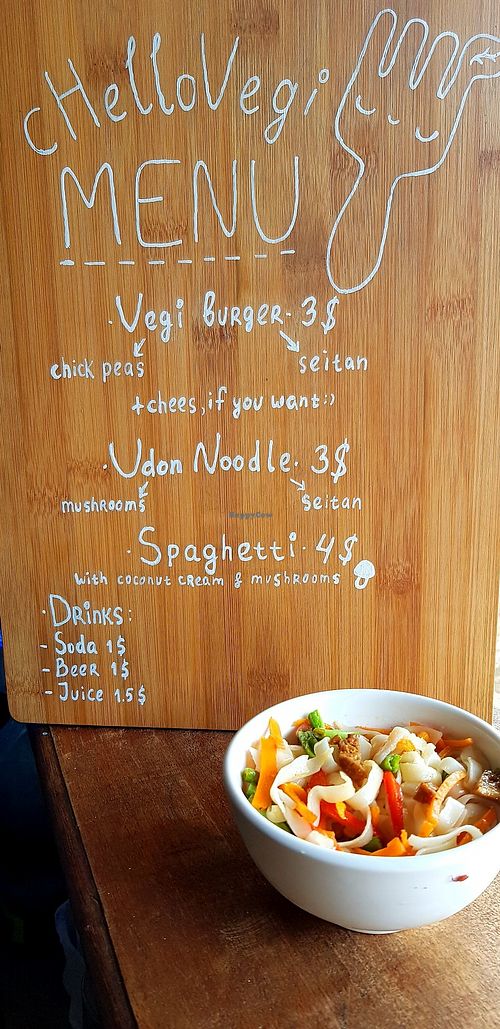 cHelloVegi
MENU
· Vegi burger · 3$
chick peas seitan
+chees, if you want:)
· Udon Noodle · 3$
mushrooms seitan
· Spaghetti · 4$
with coconut cream & mushrooms
· Drinks:
- Soda 1$
- Beer 1$
- Juice 1.5$
HappyCow